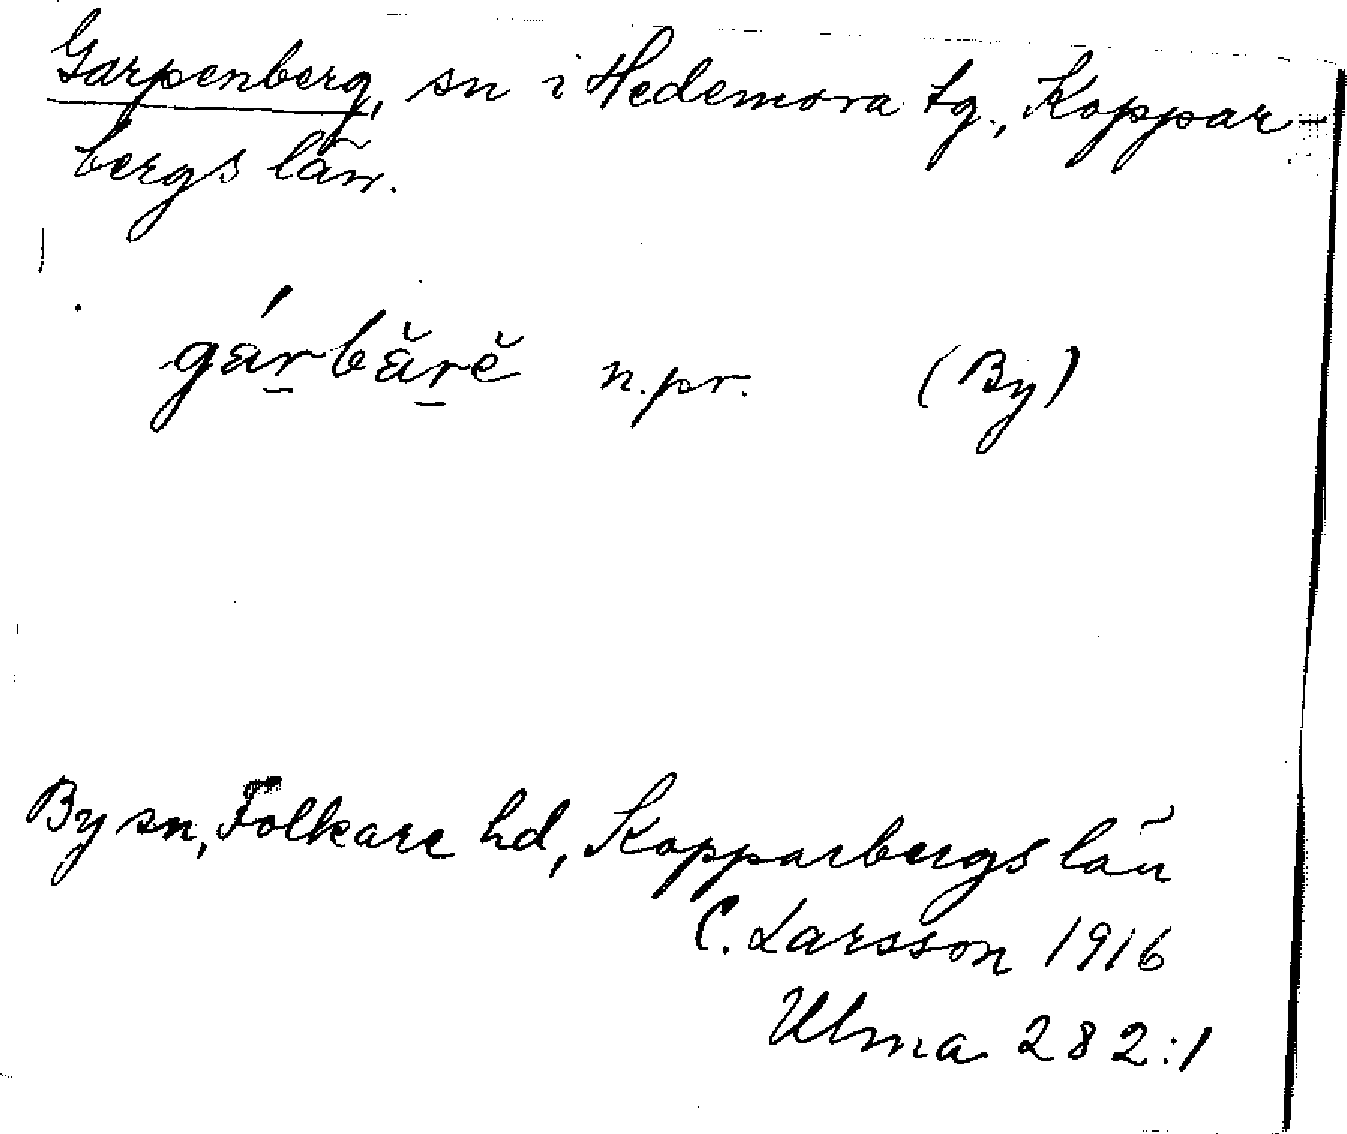 Garpenberg, sn i Hedemora tg., Koppar-
bergs län.
gár̠băr̠ĕ n.pr. (By)
By sn, Folkare hd, Kopparbergs län
C. Larsson 1916
Ulma 282:1